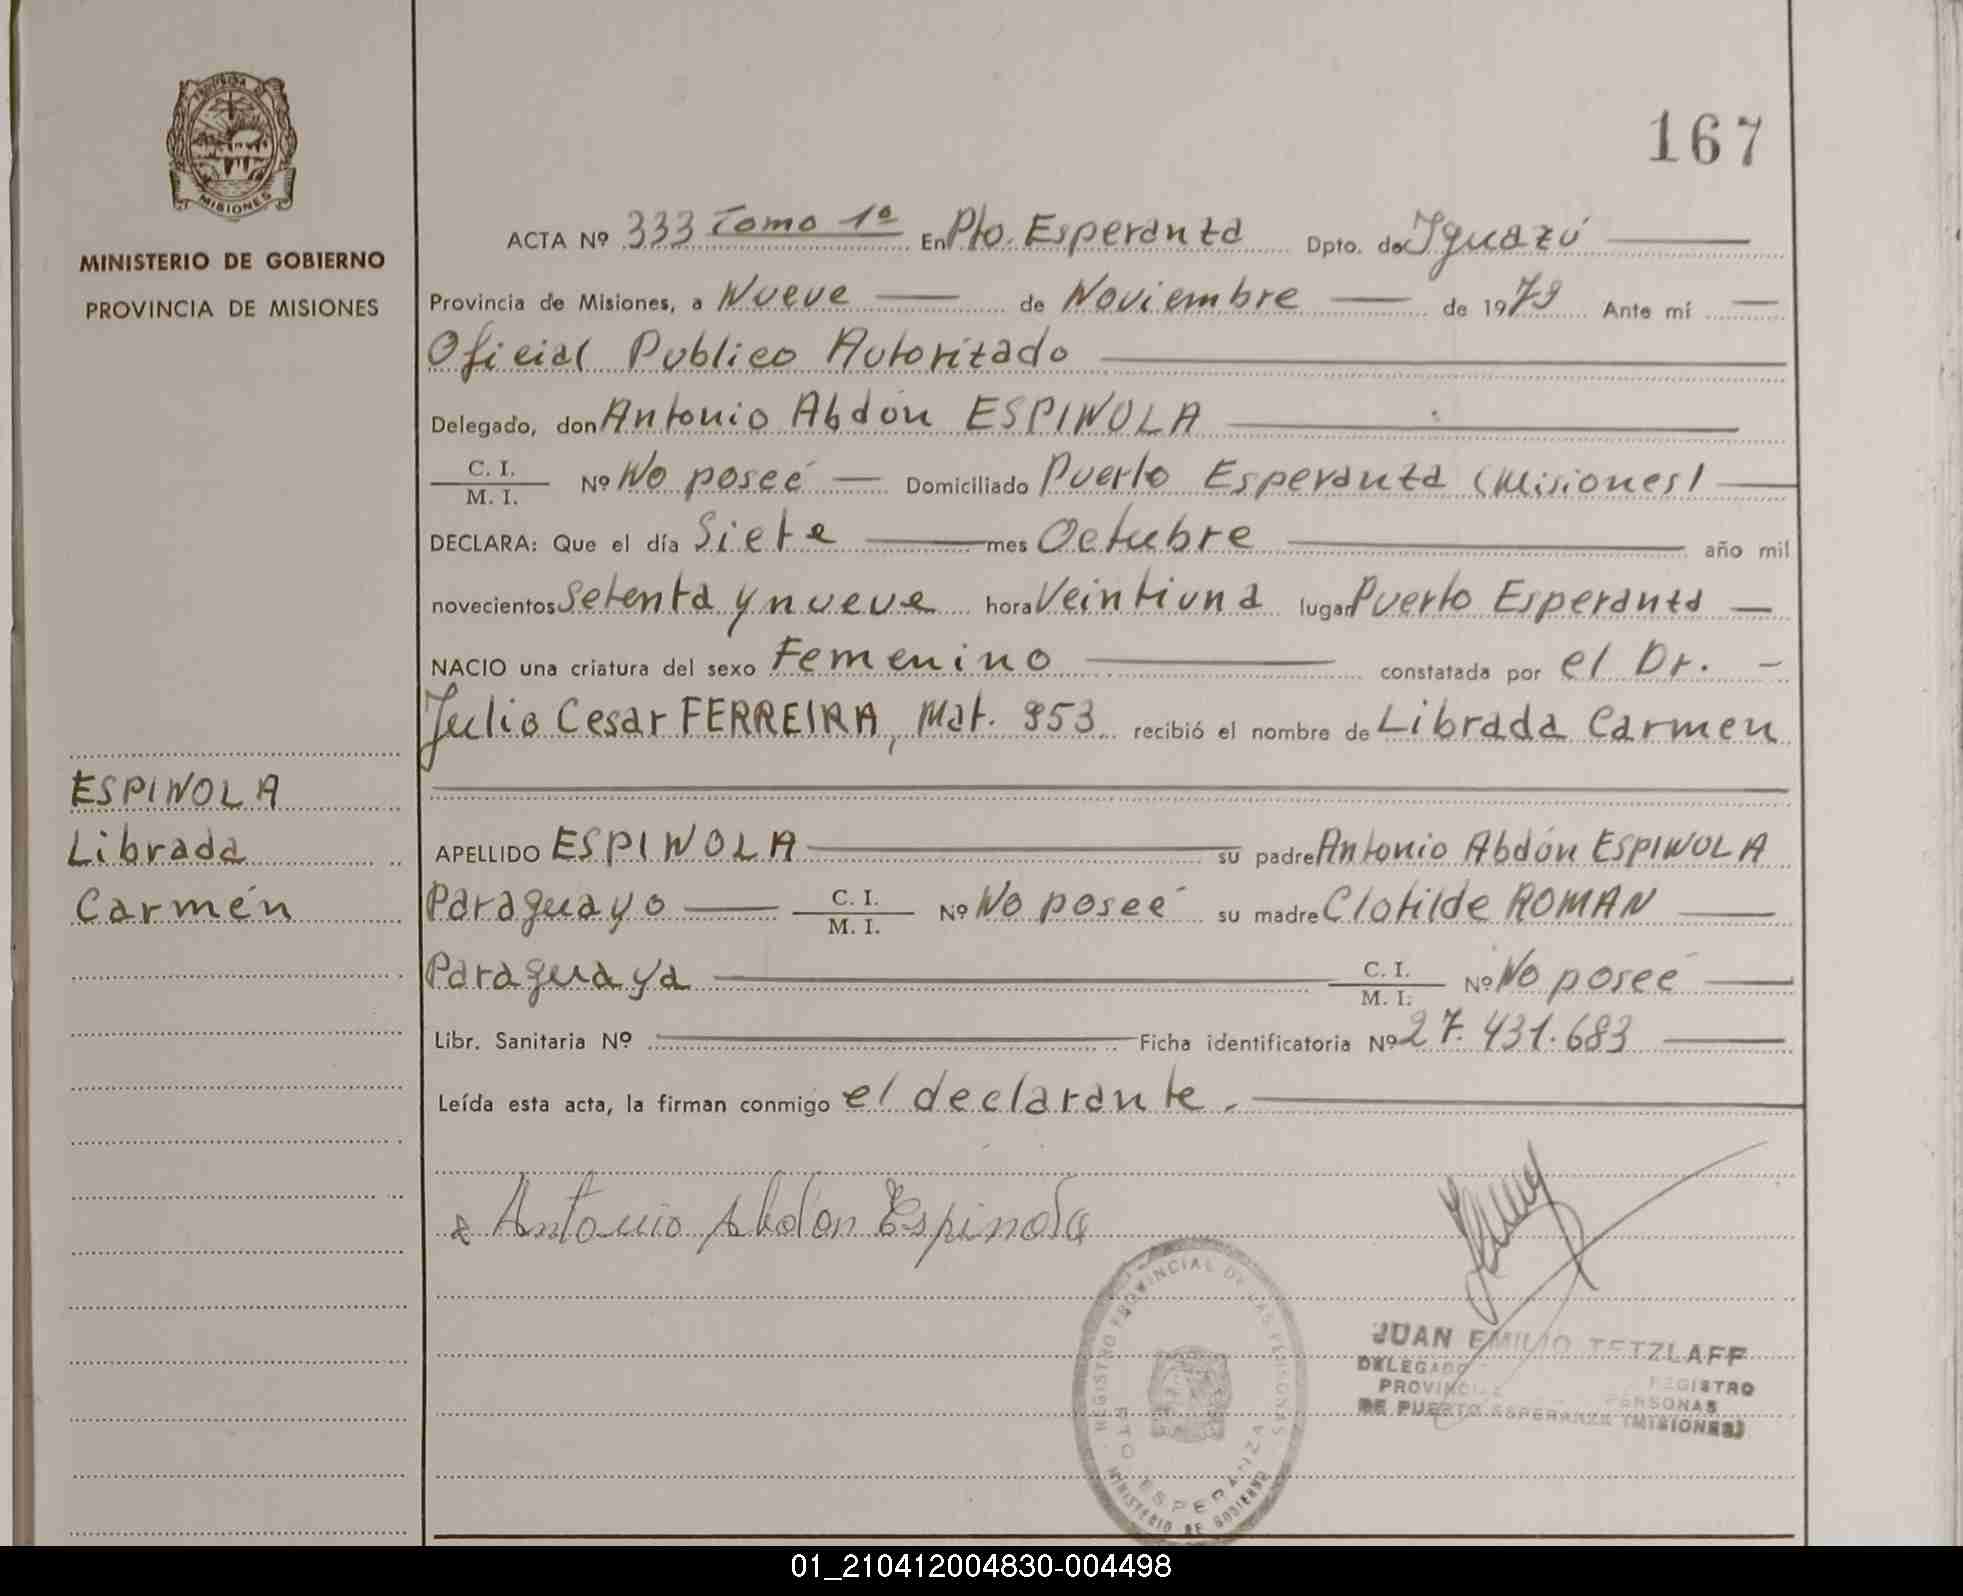 167
MISIONES
MINISTERIO DE GOBIERNO
PROVINCIA DE MISIONES
ACTA Nº 333 Tomo 1º En Pto. Esperanza Dpto. de Iguazú
Provincia de Misiones, a Nueve de Noviembre de 1979 Ante mí
Oficial Publico Autorizado
Delegado, don Antonio Abdón ESPINOLA
C. I.
M. I. Nº No poseé Domiciliado Puerto Esperanza (Misiones)
DECLARA: Que el día Siete mes Octubre año mil
novecientos setenta y nueve hora Veintiuna lugar Puerto Esperanza
NACIO una criatura del sexo Femenino constatada por el Dr.
Julio Cesar FERREIRA, Mat. 953 recibió el nombre de Librada Carmen
ESPINOLA
Librada
Carmén
APELLIDO ESPINOLA su padre Antonio Abdón ESPINOLA
Paraguayo C. I.
M. I. Nº No poseé su madre Clotilde ROMAN
Paraguaya C. I.
M. I. Nº No poseé
Libr. Sanitaria Nº Ficha identificatoria Nº 27.431.683
Leída esta acta, la firman conmigo el declarante.
Antonio Abdon Espinola
REGISTRO PROVINCIAL DE LAS PERSONAS
PTO ESPERANZA
MINISTERIO DE GOBIERNO
JUAN EMILIO TETZLAFF
DELEGADO
PROVINCIAL REGISTRO
PERSONAS
DE PUERTO ESPERANZA (MISIONES)
01_210412004830-004498